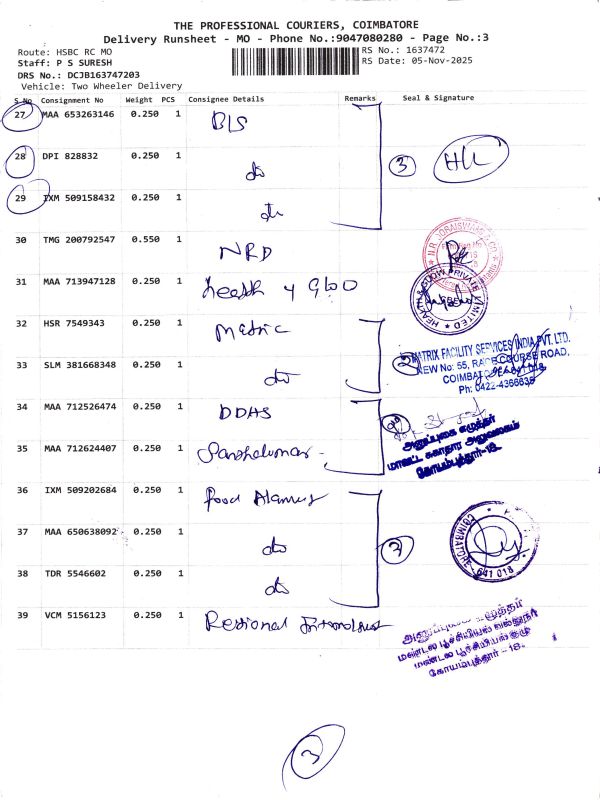 THE PROFESSIONAL COURIERS, COIMBATORE
Delivery Runsheet - MO - Phone No.:9047080280 - Page No.:3
Route: HSBC RC MO
RS No.: 1637472
Staff: P S SURESH
RS Date: 05-Nov-2025
DRS No.: DCJB163747203
Vehicle: Two Wheeler Delivery
S No Consignment No Weight PCS Consignee Details Remarks Seal & Signature
27 MAA 653263146 0.250 1 BLS
28 DPI 828832 0.250 1 do 3
29 IXM 509158432 0.250 1 do
30 TMG 200792547 0.550 1 NRD
31 MAA 713947128 0.250 1 Health & Glo
32 HSR 7549343 0.250 1 Matric
33 SLM 381668348 0.250 1 do 2
MATRIX FACILITY SERVICES INDIA PVT. LTD.
NEW No: 55, RACE COURSE ROAD,
COIMBATORE
Ph: 0422-4366635
34 MAA 712526474 0.250 1 DDHS
அனுப்புகை எழுத்தர்
மாவட்ட சுகாதார அலுவலகம்
கோயம்புத்தூர்-18.
35 MAA 712624407 0.250 1
36 IXM 509202684 0.250 1 Food
37 MAA 650638092 0.250 1 do
COIMBATORE
641 018
38 TDR 5546602 0.250 1 do
39 VCM 5156123 0.250 1 Regional
அனுப்புகை எழுத்தர்
மண்டல பூச்சியியல் வல்லுநர்
மண்டல பூச்சியியல் குழு
கோயம்புத்தூர் - 18.
3